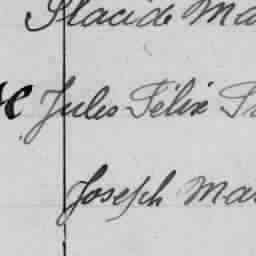 Placide Ma
Jules Félix
Joseph Mar